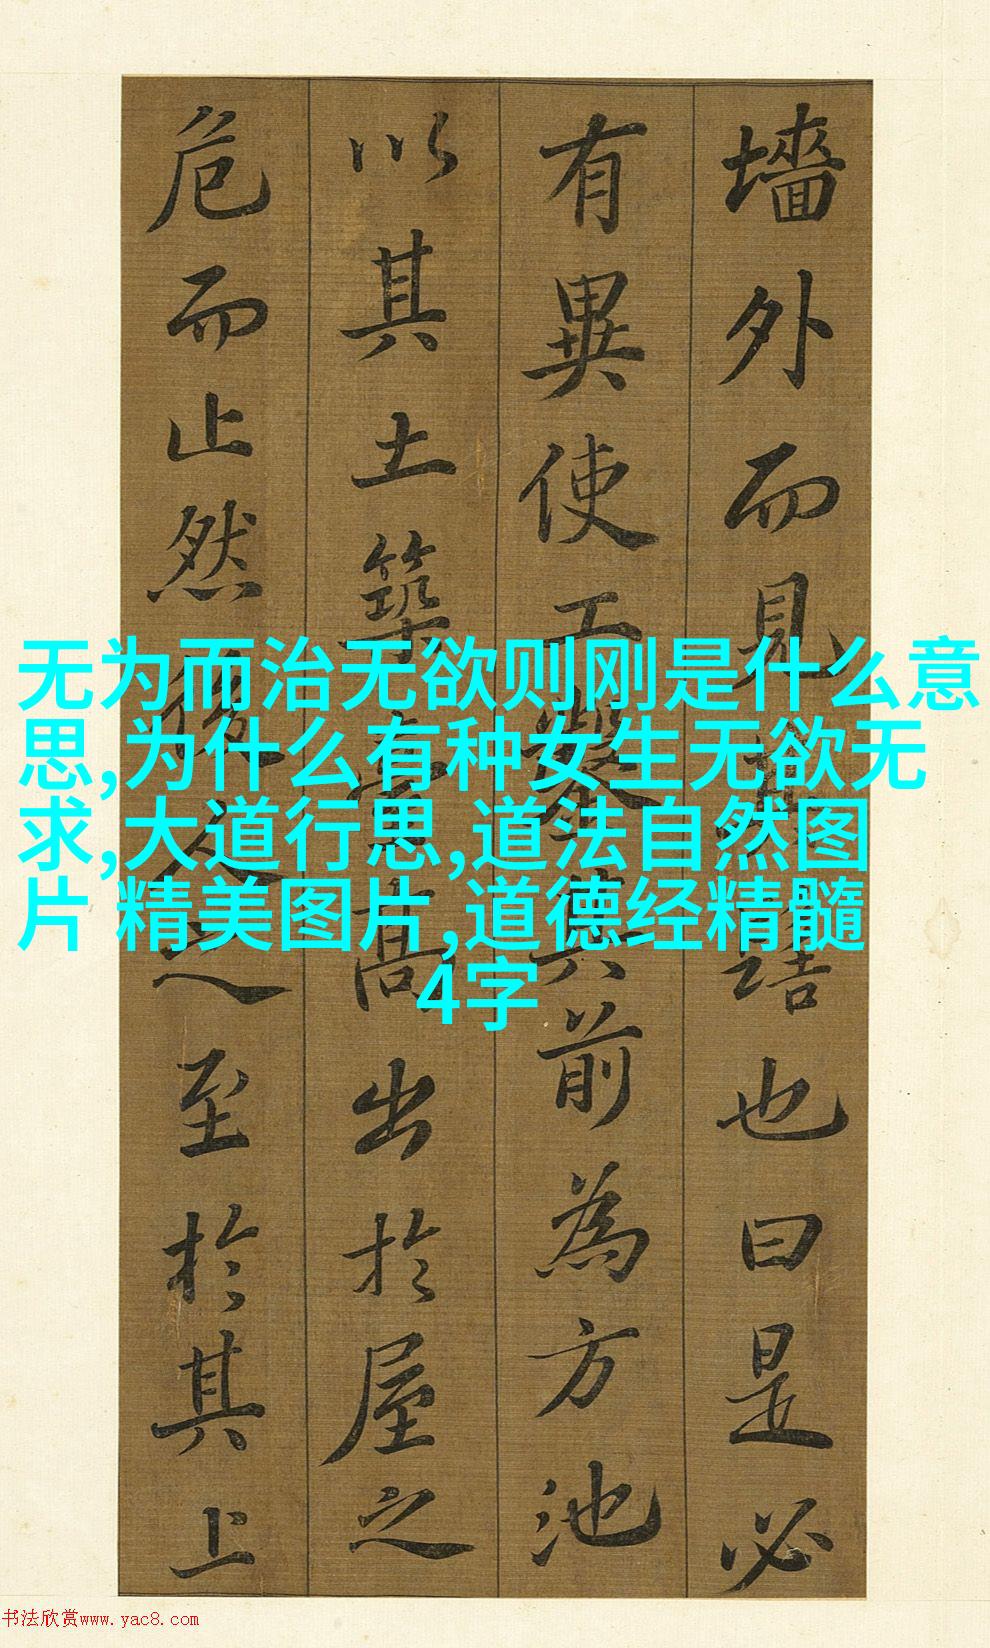 墻外而見其髻也曰是必
有異使工鑿其前為方池
以其土築臺高出於屋之
危而止然後人之至於其上
无为而治无欲则刚是什么意
思,为什么有种女生无欲无
求,大道行思,道法自然图
片 精美图片,道德经精髓
4字
书法欣赏www.yac8.com